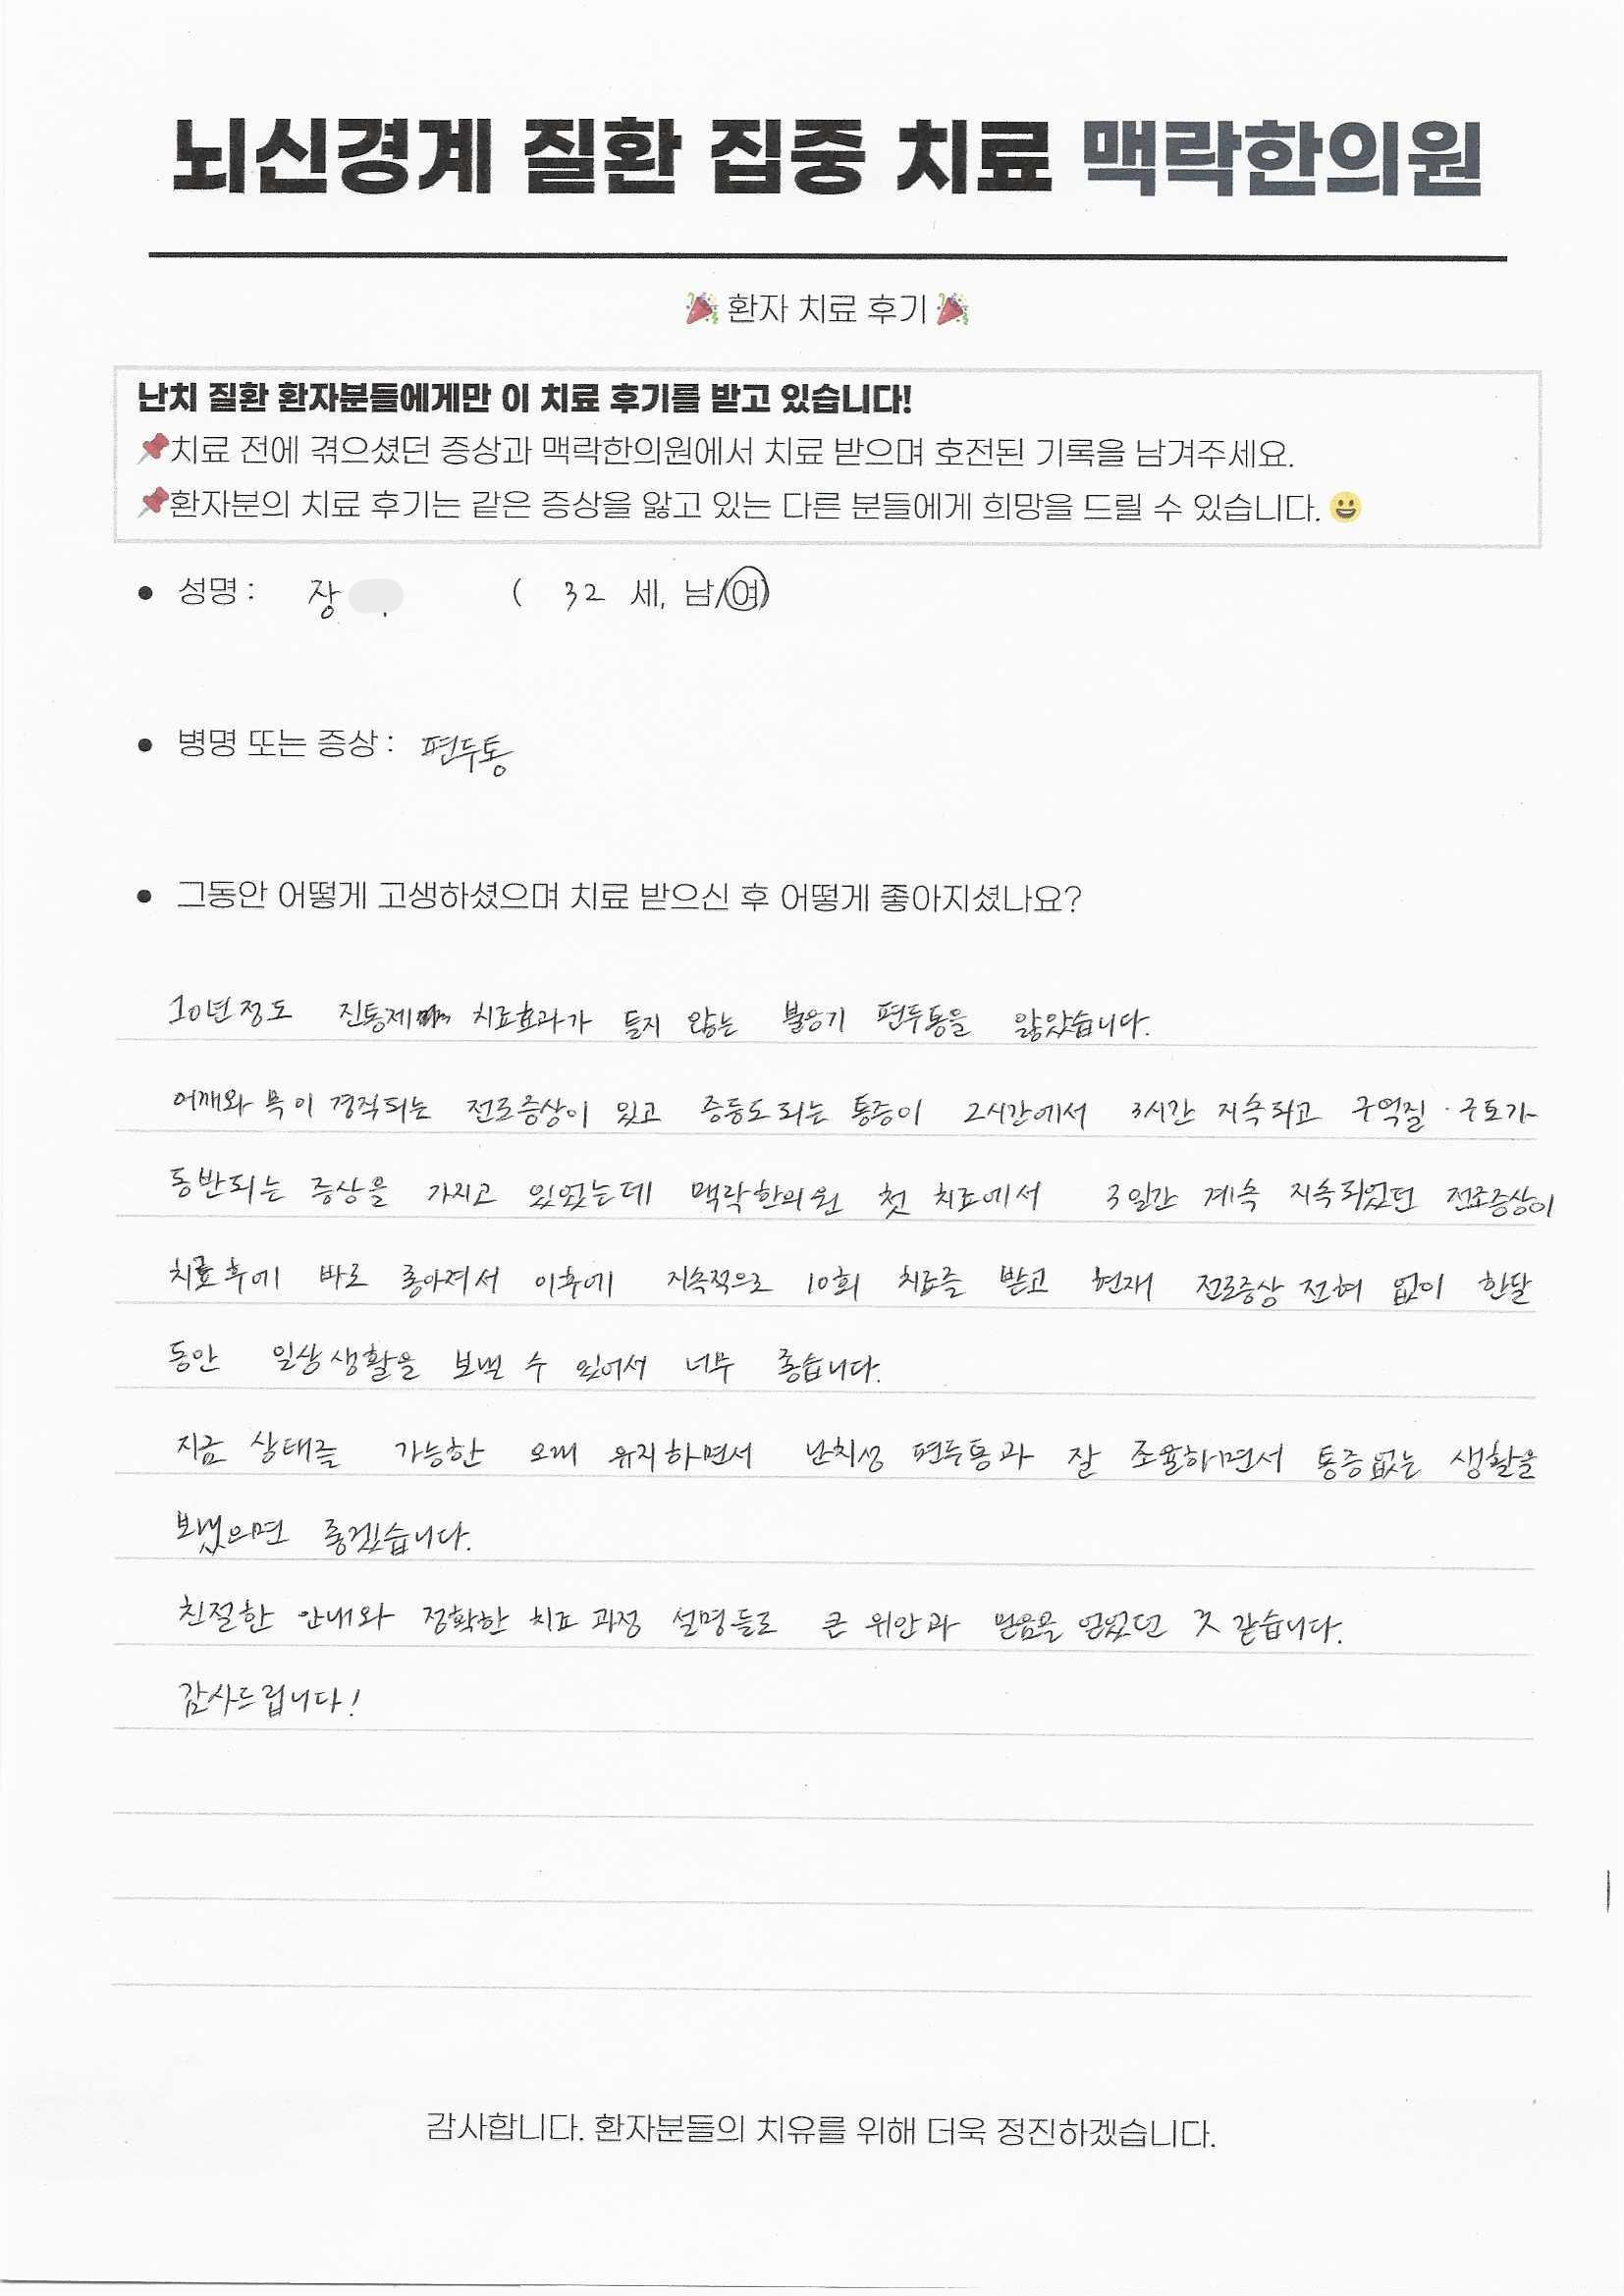 뇌신경계 질환 집중 치료 맥락한의원
🎉 환자 치료 후기 🎉
난치 질환 환자분들에게만 이 치료 후기를 받고 있습니다!
📌치료 전에 겪으셨던 증상과 맥락한의원에서 치료 받으며 호전된 기록을 남겨주세요.
📌환자분의 치료 후기는 같은 증상을 앓고 있는 다른 분들에게 희망을 드릴 수 있습니다.😀
● 성명 : 장 ( 32 세, 남/여)
● 병명 또는 증상 : 편두통
● 그동안 어떻게 고생하셨으며 치료 받으신 후 어떻게 좋아지셨나요?
10년정도 진통제 치료효과가 듣지 않는 불응기 편두통을 앓았습니다.
어깨와 목이 경직되는 전조증상이 있고 중등도 되는 통증이 2시간에서 3시간 지속되고 구역질 · 구토가
동반되는 증상을 가지고 있었는데 맥락한의원 첫 치료에서 3일간 계속 지속되었던 전조증상이
치료후에 바로 좋아져서 이후에 지속적으로 10회 치료를 받고 현재 전조증상 전혀 없이 한달
동안 일상생활을 보낼 수 있어서 너무 좋습니다.
지금 상태를 가능한 오래 유지하면서 난치성 편두통과 잘 조율하면서 통증없는 생활을
보냈으면 좋겠습니다.
친절한 안내와 정확한 치료 과정 설명들로 큰 위안과 믿음을 얻었던 것 같습니다.
감사드립니다!
감사합니다. 환자분들의 치유를 위해 더욱 정진하겠습니다.